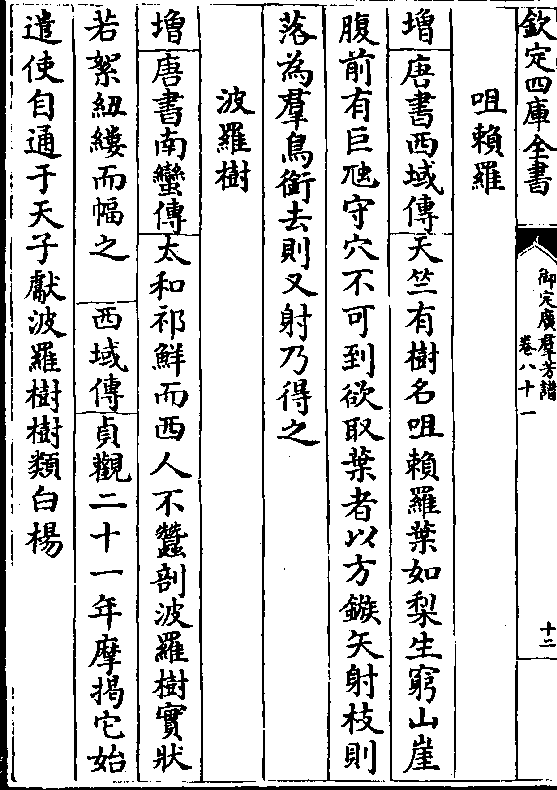 欽定四庫全書
御定廣羣芳譜
卷八十一
十二
咀賴羅
增唐書西域傳天竺有樹名咀賴羅葉如梨生窮山崖
腹前有巨虺守穴不可到欲取葉者以方鏃矢射枝則
落為羣鳥銜去則又射乃得之
波羅樹
增唐書南蠻傳太和祁鮮而西人不蠶剖波羅樹實狀
若絮紐縷而幅之 西域傳貞觀二十一年摩揭它始
遣使自通于天子獻波羅樹樹類白楊